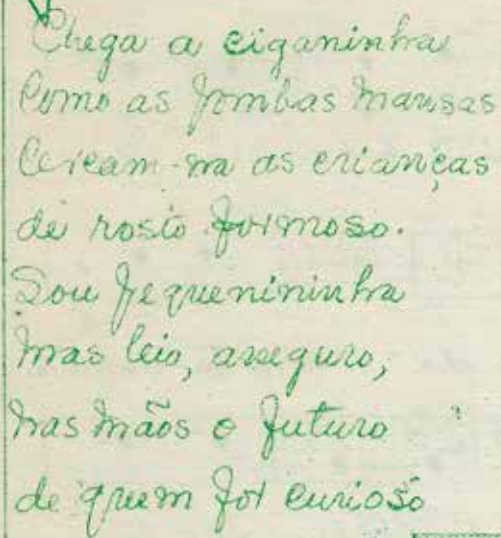 Chega a ciganinha
Como as pombas mansas
Cercam-na as crianças
de rosto formoso.
Sou pequenininha
mas leio, asseguro,
nas mãos o futuro
de quem for curioso